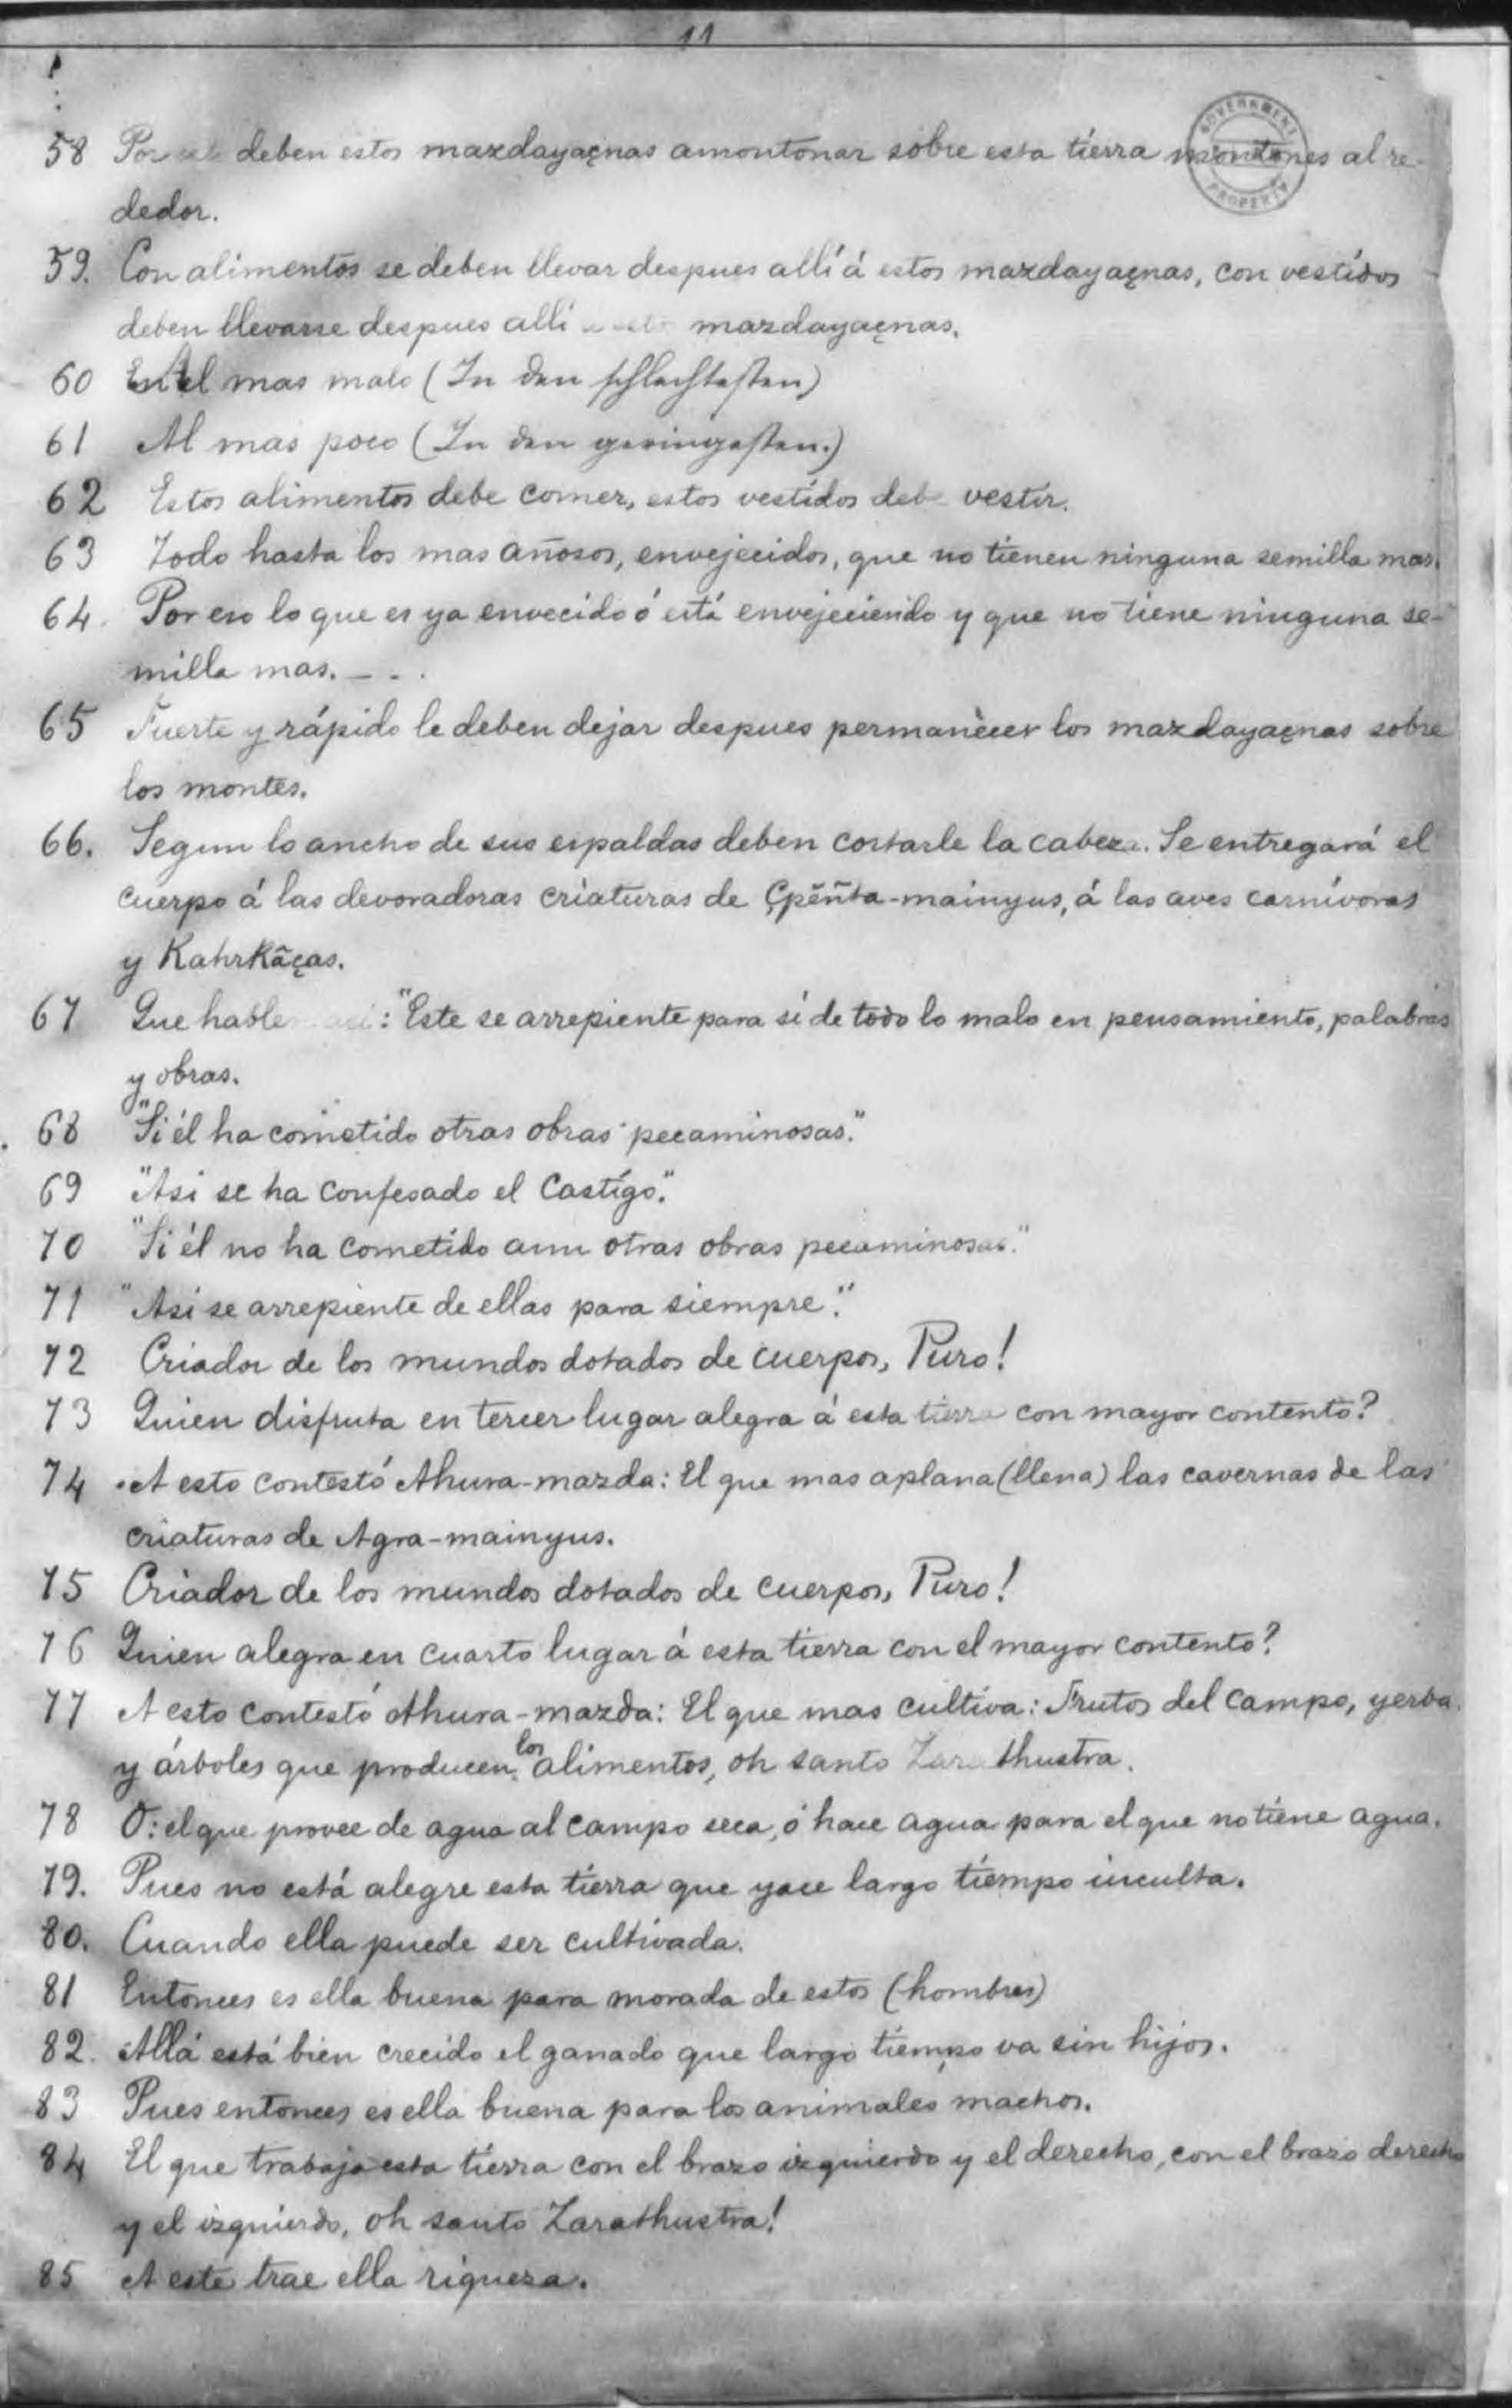 11
GOVERNMENT PROPERTY
58 deben estos mazdayaçnas amontonar sobre esta tierra montones al re-
dedor.
59. Con alimentos se deben llevar despues allí á estos mazdayaçnas, con vestidos
deben llevarse despues alli mazdayaçnas.
60 En el mas malo (In den schlechtesten)
61 Al mas poco (In den geringesten.)
62 Estos alimentos debe comer, estos vestidos debe vestir.
63 Todo hasta los mas añosos, envejecidos, que no tienen ninguna semilla mas.
64. Por eso lo que es ya envecido ó está envejeciendo y que no tiene ninguna se-
milla mas. - - .
65 Fuerte y rápido le deben dejar despues permanecer los mazdayaçnas sobre
los montes.
66. Segun lo ancho de sus espaldas deben cortarle la cabeza. Se entregará el
cuerpo á las devoradoras criaturas de Çpẽñta-mainyus, á las aves carnívoras
y Kahrkãças.
67 Que hablen : "Este se arrepiente para sí de todo lo malo en pensamiento, palabras
y obras.
68 "Si él ha cometido otras obras pecaminosas".
69 "Asi se ha confesado el castigo".
70 "Si él no ha cometido aun otras obras pecaminosas."
71 "Asi se arrepiente de ellas para siempre".
72 Criador de los mundos dotados de cuerpos, Puro!
73 Quien disfruta en tercer lugar alegra á esta tierra con mayor contento?
74 A esto contestó Ahura-mazda: El que mas aplana (llena) las cavernas de las
criaturas de Agra-mainyus.
75 Criador de los mundos dotados de cuerpos, Puro!
76 Quien alegra en cuarto lugar á esta tierra con el mayor contento?
77 A esto contestó Ahura-mazda: El que mas cultiva: Frutos del campo, yerba
y árboles que producen los alimentos, oh santo Zarathustra.
78 O: el que provee de agua al campo seca, ó hace agua para el que no tiene agua.
79. Pues no está alegre esta tierra que yace largo tiempo inculta.
80. Cuando ella puede ser cultivada.
81 Entonces es ella buena para morada de estos (hombres)
82. Allá está bien crecido el ganado que largo tiempo va sin hijos.
83 Pues entonces es ella buena para los animales machos.
84 El que trabaja esta tierra con el brazo izquierdo y el derecho, con el brazo derecho
y el izquierdo, oh santo Zarathustra!
85 A este trae ella riqueza.